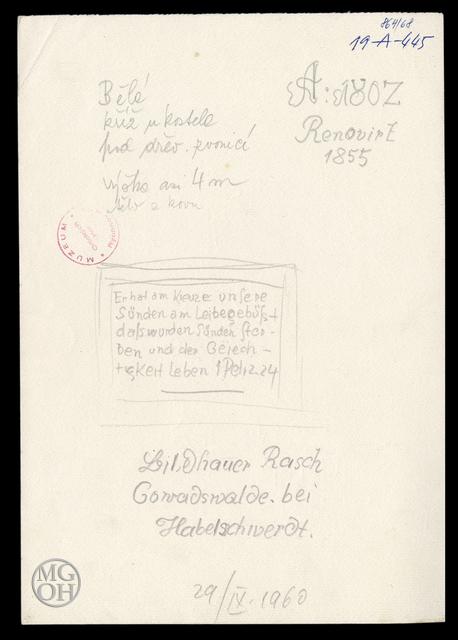 864/68
19-A-445
Bělá
kříž u kostela
pod dřev. zvonicí
výška asi 4 m
tělo z kovu
A: 180Z
Renovirt
1855
MUZEUM
Er hat am Kreuze unsere
Sünden am Leibe gebüßt
daß wir den Sünden ster-
ben und der Gerech-
tigkeit Leben 1 Petr 2.24
Bildhauer Rasch
Conradswalde. bei
Habelschwerdt.
29/IX. 1960
MG
OH